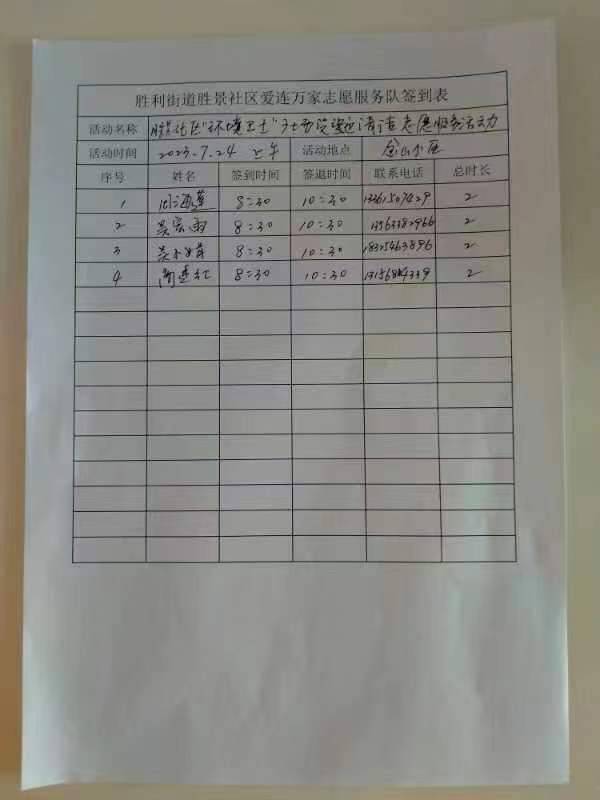 胜利街道胜景社区爱连万家志愿服务队签到表
活动名称 胜景社区"环境卫士" 清洁志愿服务活动
活动时间 2023.7.24 上午 活动地点 金山小区
序号 姓名 签到时间 签退时间 联系电话 总时长
1 8:30 10:30 2
2 吴宏雨 8:30 10:30 13563382966 2
3 8:30 10:30 18325463896 2
4 8:30 10:30 2